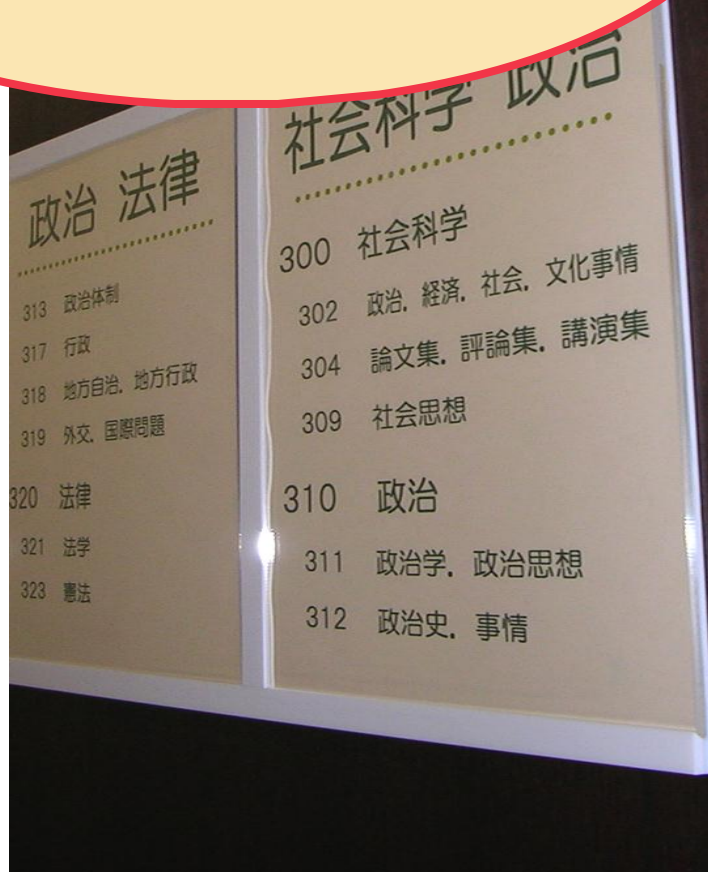 政治 法律
313 政治体制
317 行政
318 地方自治. 地方行政
319 外交. 国際問題
320 法律
321 法学
323 憲法
社会科学 政治
300 社会科学
302 政治. 経済. 社会. 文化事情
304 論文集. 評論集. 講演集
309 社会思想
310 政治
311 政治学. 政治思想
312 政治史. 事情